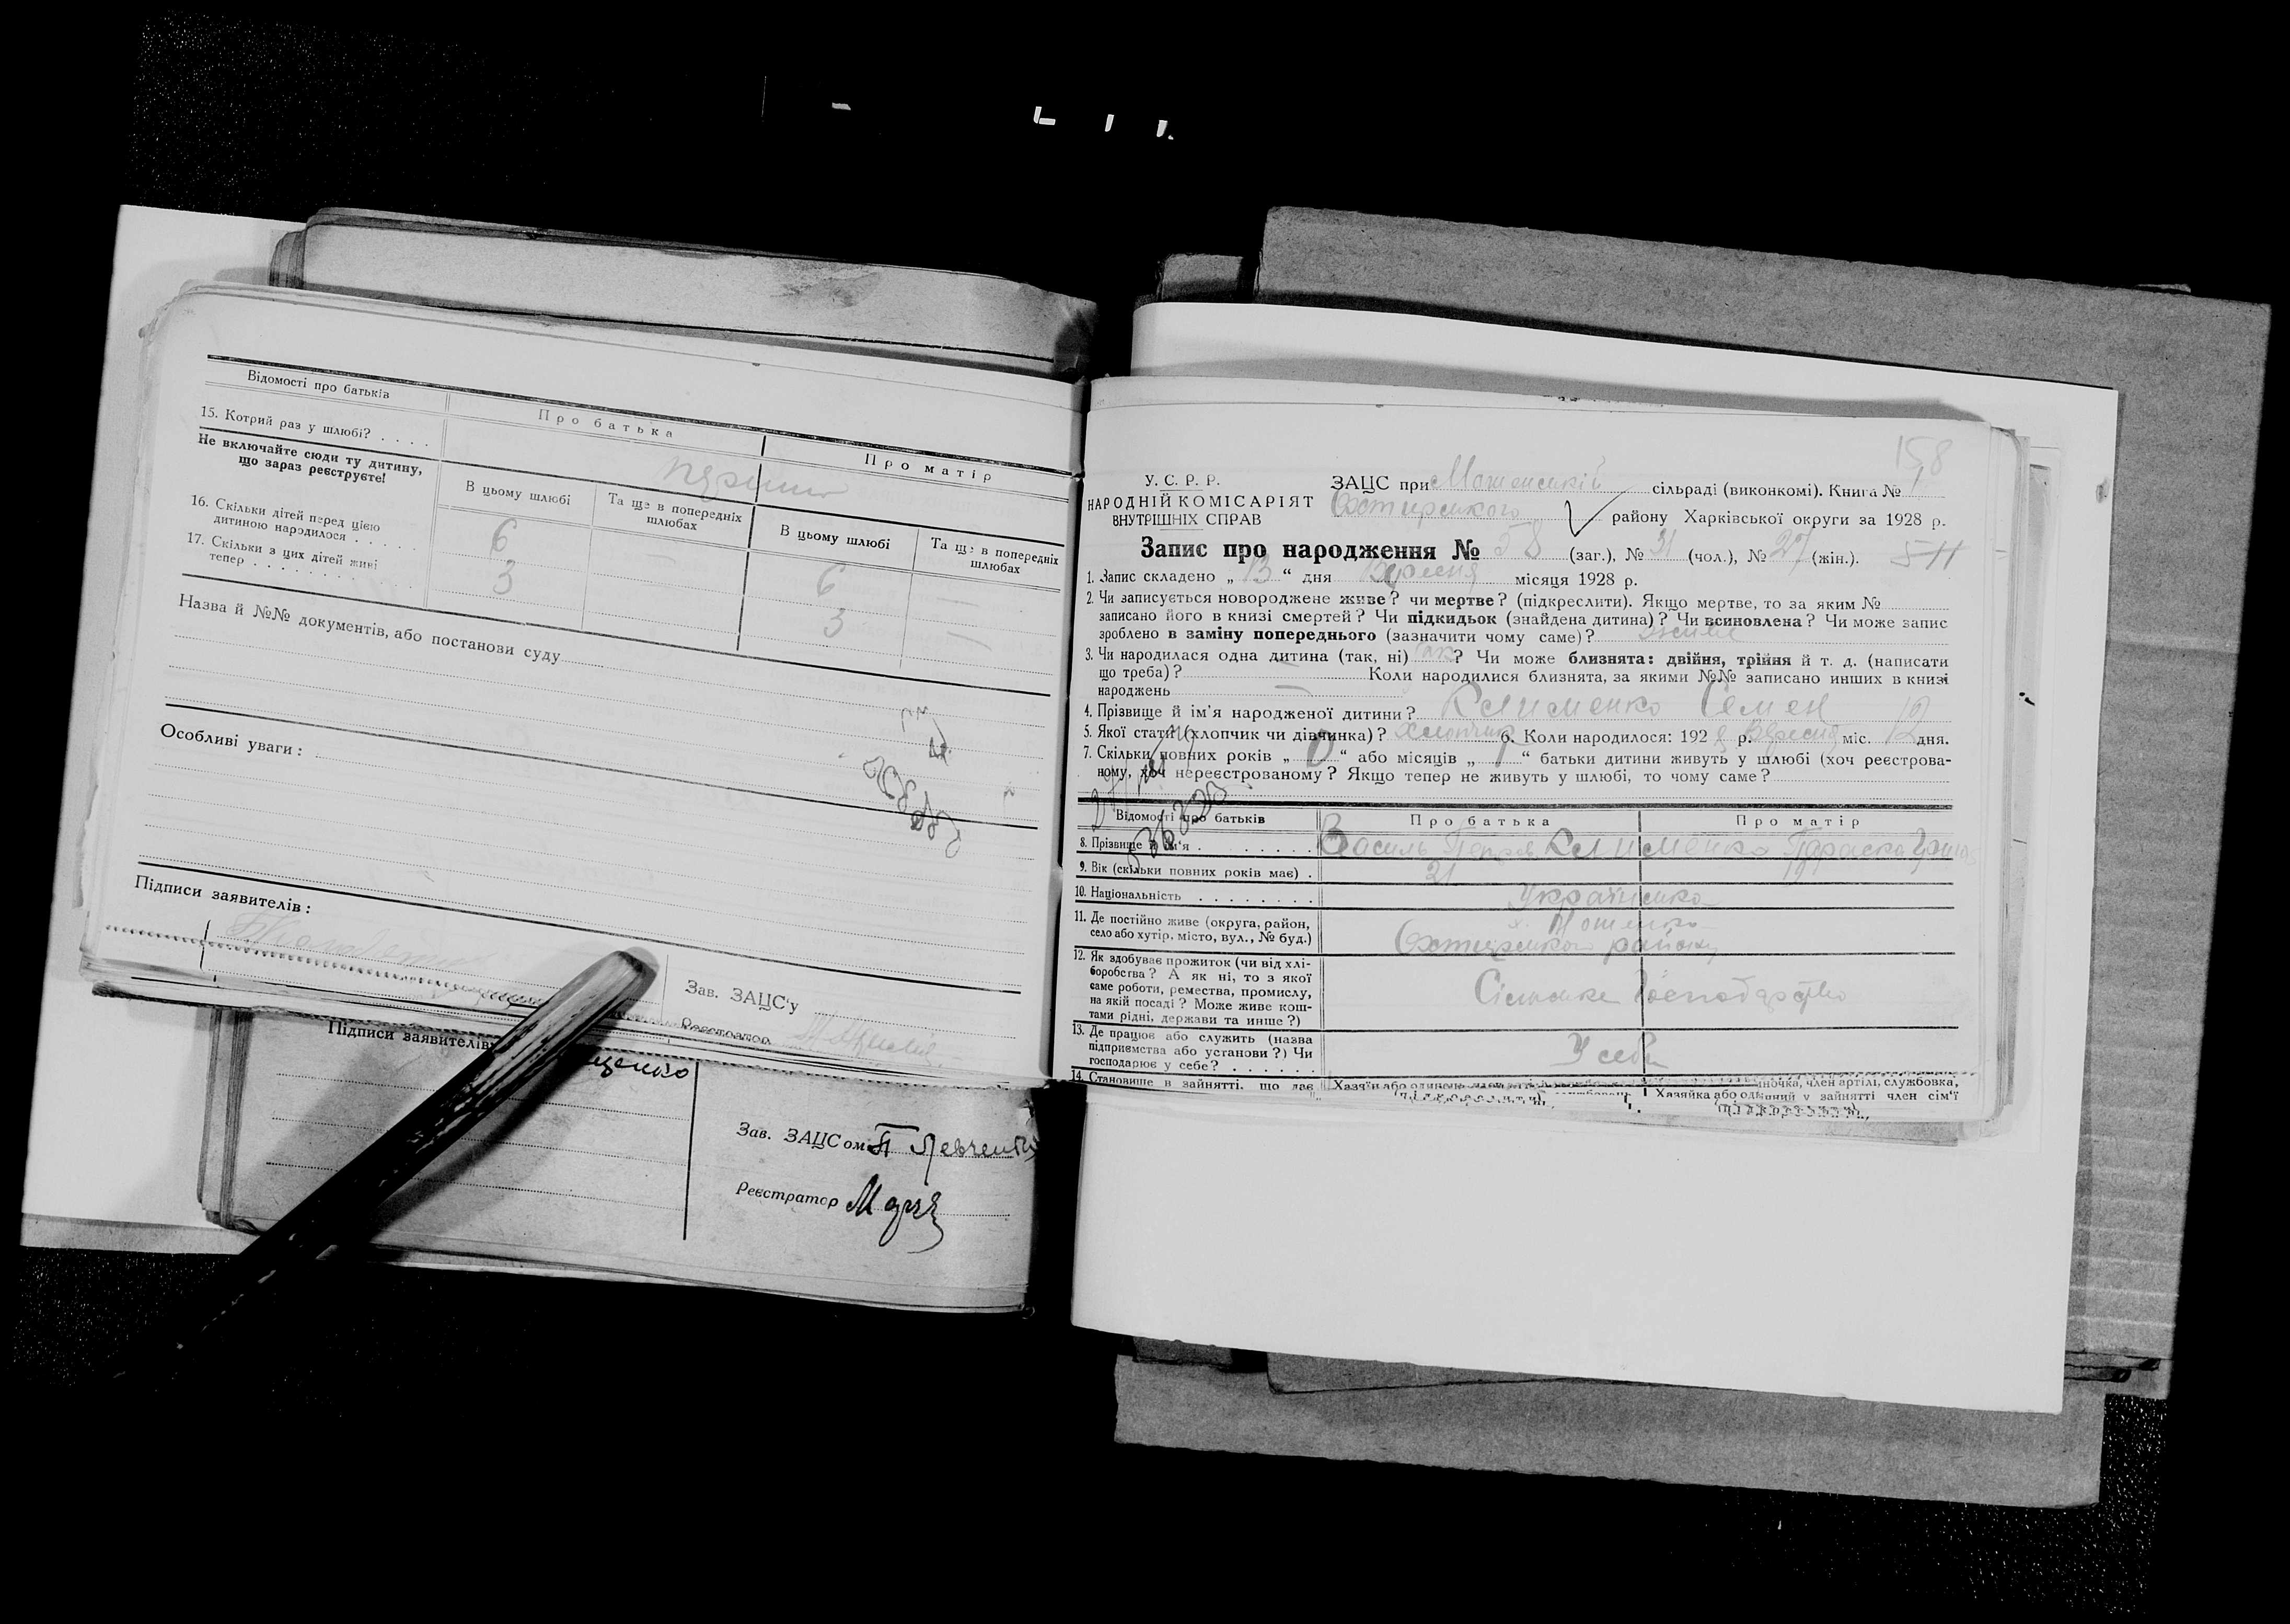 Відомості про батьків
Про батька
Про матір
15. Котрий раз у шлюбі? . . . .
Не включайте сюди ту дитину,
що зараз реєструєте!
В цьому шлюбі
Та ще в попередніх
шлюбах
В цьому шлюбі
Та ще в попередніх
шлюбах
16. Скільки дітей перед цією
дитиною народилося . . . . .
6
6
—
17. Скільки з цих дітей живі
тепер . . . . . . . . . . . .
3
3
—
Назва й №№ документів, або постанови суду
Особливі уваги:
Підписи заявителів:
Зав. ЗАЦС'у
Реєстратор
Підписи заявителів:
щенко
Зав. ЗАЦСом П Левченко
Реєстратор
158
У. С. Р. Р.
НАРОДНІЙ КОМІСАРІЯТ
ВНУТРІШНІХ СПРАВ
ЗАЦС при Мошенській сільраді (виконкомі). Книга № 1
Охтирського району Харківської округи за 1928 р.
Запис про народження № 58 (заг.), № 31 (чол.), № 27 (жін.).
1. Запис складено „ 13 “ дня Вересня місяця 1928 р.
2. Чи записується новороджене живе? чи мертве? (підкреслити). Якщо мертве, то за яким №
записано його в книзі смертей? Чи підкидьок (знайдена дитина)? Чи всиновлена? Чи може запис
зроблено в заміну попереднього (зазначити чому саме)? живе
3. Чи народилася одна дитина (так, ні) так? Чи може близнята: двійня, трійня й т. д. (написати
що треба)? — Коли народилися близнята, за якими №№ записано инших в книзі
народжень —
4. Прізвище й ім'я народженої дитини? Клименко Семен
5. Якої статі (хлопчик чи дівчинка)? хлопчик 6. Коли народилося: 1928 р. Вересня міс. 12 дня.
7. Скільки повних років „ 0 “ або місяців „ “ батьки дитини живуть у шлюбі (хоч реєстрова-
ному, хоч нереєстрованому? Якщо тепер не живуть у шлюбі, то чому саме?
Відомості про батьків
Про батька
Про матір
8. Прізвище й ім'я . . . . . . . .
Василь Петров. Клименко Параска
9. Вік (скільки повних років має) .
21
19
10. Національність . . . . . . . .
Українська
11. Де постійно живе (округа, район,
село або хутір, місто, вул., № буд.)
Охтирського району
12. Як здобуває прожиток (чи від хлі-
боробства? А як ні, то з якої
саме роботи, ремества, промислу,
на якій посаді? Може живе кош-
тами рідні, держави та инше?)
Сільське Господарство
13. Де працює або служить (назва
підприємства або установи?) Чи
господарює у себе? . . . . . .
У себе
14. Становище в зайнятті, що дає
Хазяїн або
иночка, член артілі, службовка,
Хазяйка або одиний у зайнятті член сім'ї